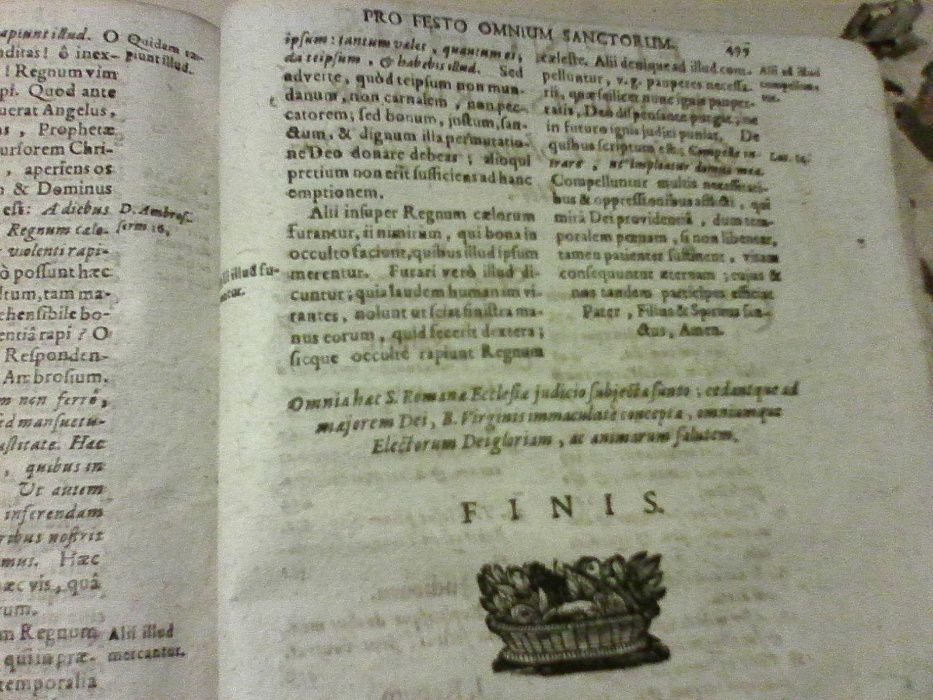 apiunt illud. O
nditas! ô inex-
! Regnum vim
pi. Quod ante
uerat Angelus,
as, Prophetæ
ursorem Chri-
, aperiens os
o & Dominus
est: A diebus
Regnum cælo-
violenti rapi-
ò possunt hæc
ltum, tam ma-
ehensibile bo-
entiâ rapi? O
Responden-
Ambrosium.
m non ferro,
ed mansuetu-
astitate. Hæc
, quibus in
Ut autem
inferendam
ribus nostris
mus. Hæc
æc vis, quâ
rum.
m Regnum
qui in præ-
temporalia
Quidam ra-
piunt illud.
D. Ambros.
serm 16.
Alii illud
mercantur.
PRO FESTO OMNIUM SANCTORUM.
495
ipsum: tantum valet, quantum es,
da teipsum, & habebis illud. Sed
adverte, quòd teipsum non mun-
danum, non carnalem, non pec-
catorem; sed bonum, justum, san-
ctum, & dignum illa permutatio-
ne Deo donare debeas; alioqui
pretium non erit sufficiens ad hanc
emptionem.
Alii insuper Regnum cælorum
furantur, ii nimirum, qui bona in
occulto faciunt, quibus illud ipsum
merentur. Furari verò illud di-
cuntur; quia laudem humanam vi-
tantes, nolunt ut sciat sinistra ma-
nus eorum, quid fecerit dextera;
sicque occultè rapiunt Regnum
illud fu-
antur.
cæleste. Alii denique ad illud com-
pelluntur, v.g. pauperes necessa-
rii, quæ scilicet nunc igni pauper-
tatis, Deo dispensante purgat, ne
in futuro ignis judicii puniat. De
quibus scriptum est: Compelle in-
trare, ut impleatur domus mea.
Compelluntur multis necessitati-
bus & oppressionibus afflicti, qui
mirâ Dei providentiâ, dum tem-
poralem pœnam, si non libenter,
tamen patienter sustinent, vitam
consequuntur æternam; cujus &
nos tandem participes efficiat
Pater, Filius & Spiritus San-
ctus, Amen.
Alii ad illud
compellun-
tur.
Luc. 14.
Omnia hæc S. Romanæ Ecclesiæ judicio subjecta sunto; cedantque ad
majorem Dei, B. Virginis immaculatè conceptæ, omniumque
Electorum Dei gloriam, ac animarum salutem.
FINIS.